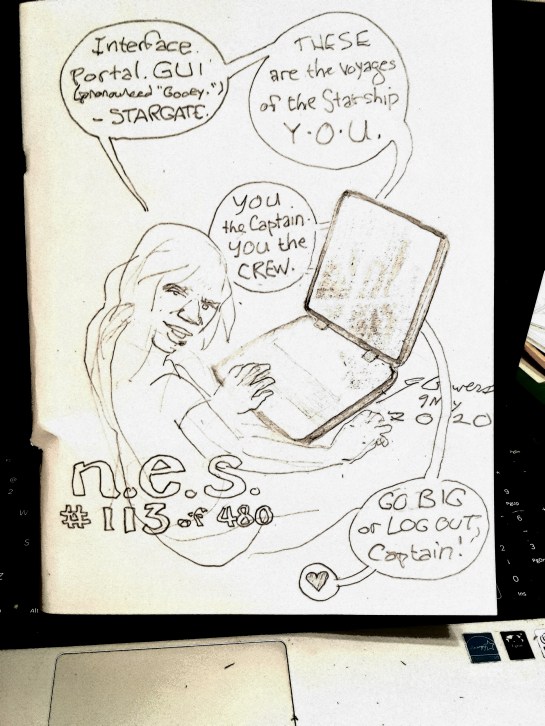 Interface.
Portal.GUI
(pronounced "Gooey.")
- STARGATE.
THESE
are the voyages
of the Starship
Y.O.U.
YOU
the Captain.
YOU the
CREW.
9 May
2020
n.e.s.
#113 of 480
GO BIG
or LOG OUT,
Captain!